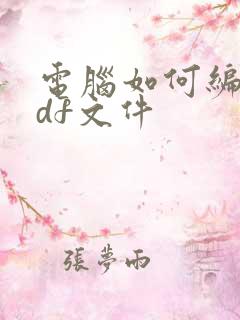 電腦如何編
df文件
張夢雨